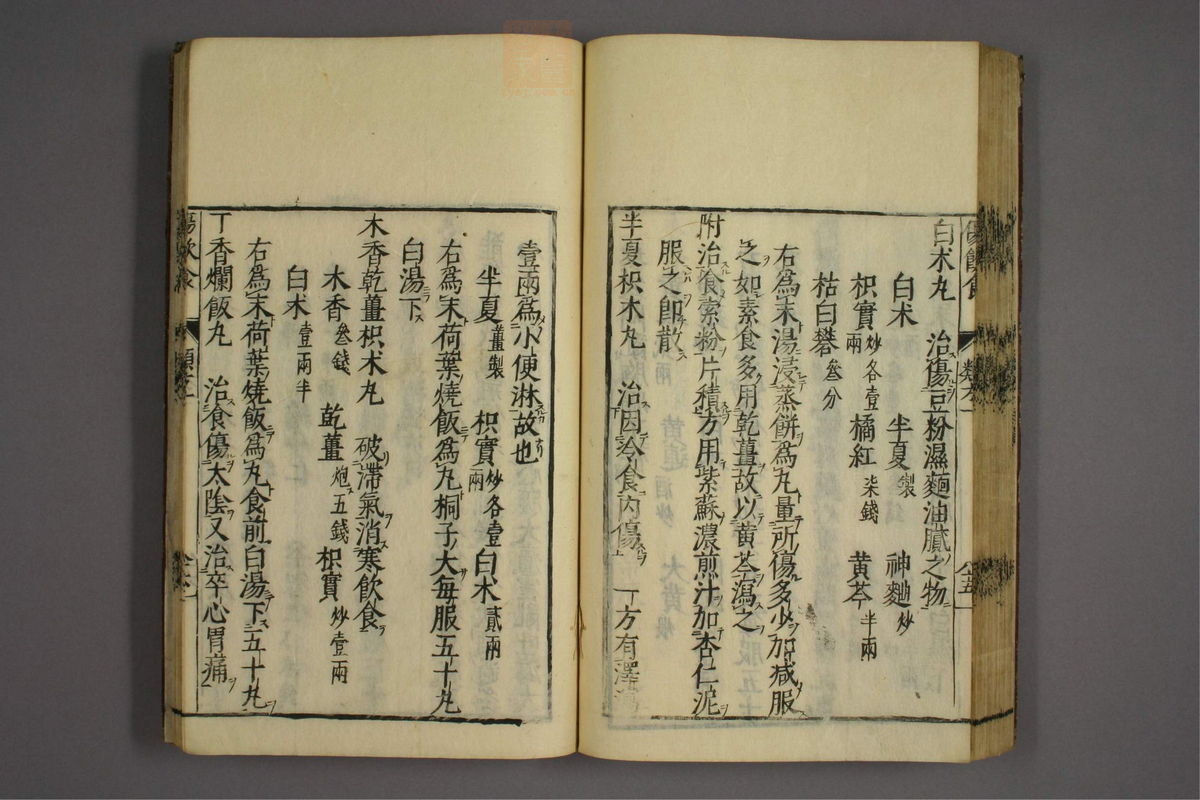 白朮丸　治傷豆粉濕麵油膩之物
白朮　半夏製　神麯炒
枳實炒各壹兩　橘紅柒錢　黄芩半兩
枯白礬叄分
右爲末湯浸蒸餅爲丸量所傷多少加減服
之如素食多用乾薑故以黄芩瀉之
附治食索粉片積方用紫蘇濃煎汁加杏仁泥
服之即散
半夏枳朮丸　治因冷食内傷　一方有澤瀉
壹兩爲小便淋故也
半夏薑製　枳實炒各壹兩　白朮貳兩
右爲末荷葉燒飯爲丸桐子大每服五十丸
白湯下
木香乾薑枳朮丸　破滯氣消寒飲食
木香叄錢　乾薑炮五錢　枳實炒壹兩
白朮壹兩半
右爲末荷葉燒飯爲丸食前白湯下五十丸
丁香爛飯丸　治食傷太陰又治卒心胃痛